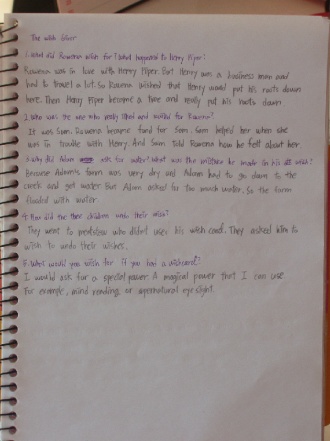 The wish Giver
1. What did Rowena wish for? What happened to Henry Piper?
Rowena was in love with Henry Piper. But Henry was a business man and
had to travel a lot. So Rowena wished that Henry would put his roots down
here. Then Henry Piper become a tree and really put his roots down
2. Who was the one who really liked and cared for Rowena?
It was Sam. Rowena became fond for Sam. Sam helped her when she
was in trouble with Henry. And Sam told Rowena how he felt about her.
3. Why did Adam ask for water? What was the mistake he made in his wish?
Because Adam's farm was very dry and Adam had to go down to the
creek and get water. But Adam asked for too much water. So the farm
flooded with water.
4. How did the three children undo their wishes?
They went to who didn't use his wish card. They asked him to
wish to undo their wishes.
5. What would you wish for if you had a wishcard?
I would ask for a special power. A magical power that I can use
For example, mind reading, or supernatural eye sight.